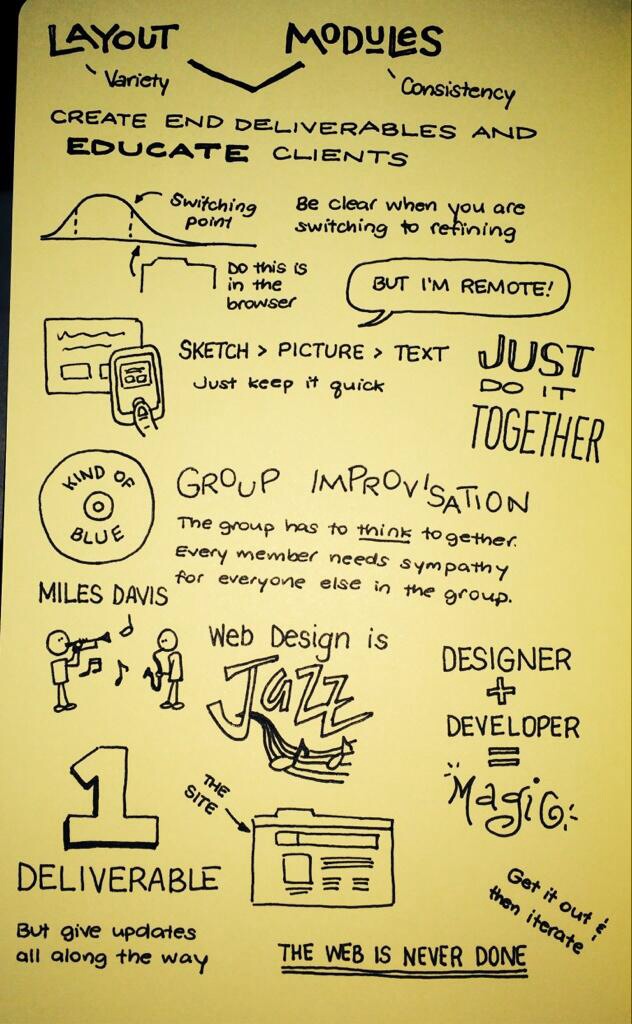 LAYOUT MODULES
Variety
Consistency
CREATE END DELIVERABLES AND
EDUCATE CLIENTS
Switching
point
Be clear when you are
switching to refining
Do this is
in the
browser
BUT I'M REMOTE!
SKETCH > PICTURE > TEXT
Just keep it quick
JUST
DO IT
TOGETHER
KIND OF
BLUE
MILES DAVIS
GROUP IMPROVISATION
The group has to think together.
Every member needs sympathy
for everyone else in the group.
Web Design is
Jazz
DESIGNER
+
DEVELOPER
=
Magic
1
DELIVERABLE
THE
SITE
But give updates
all along the way
Get it out &
then iterate
THE WEB IS NEVER DONE